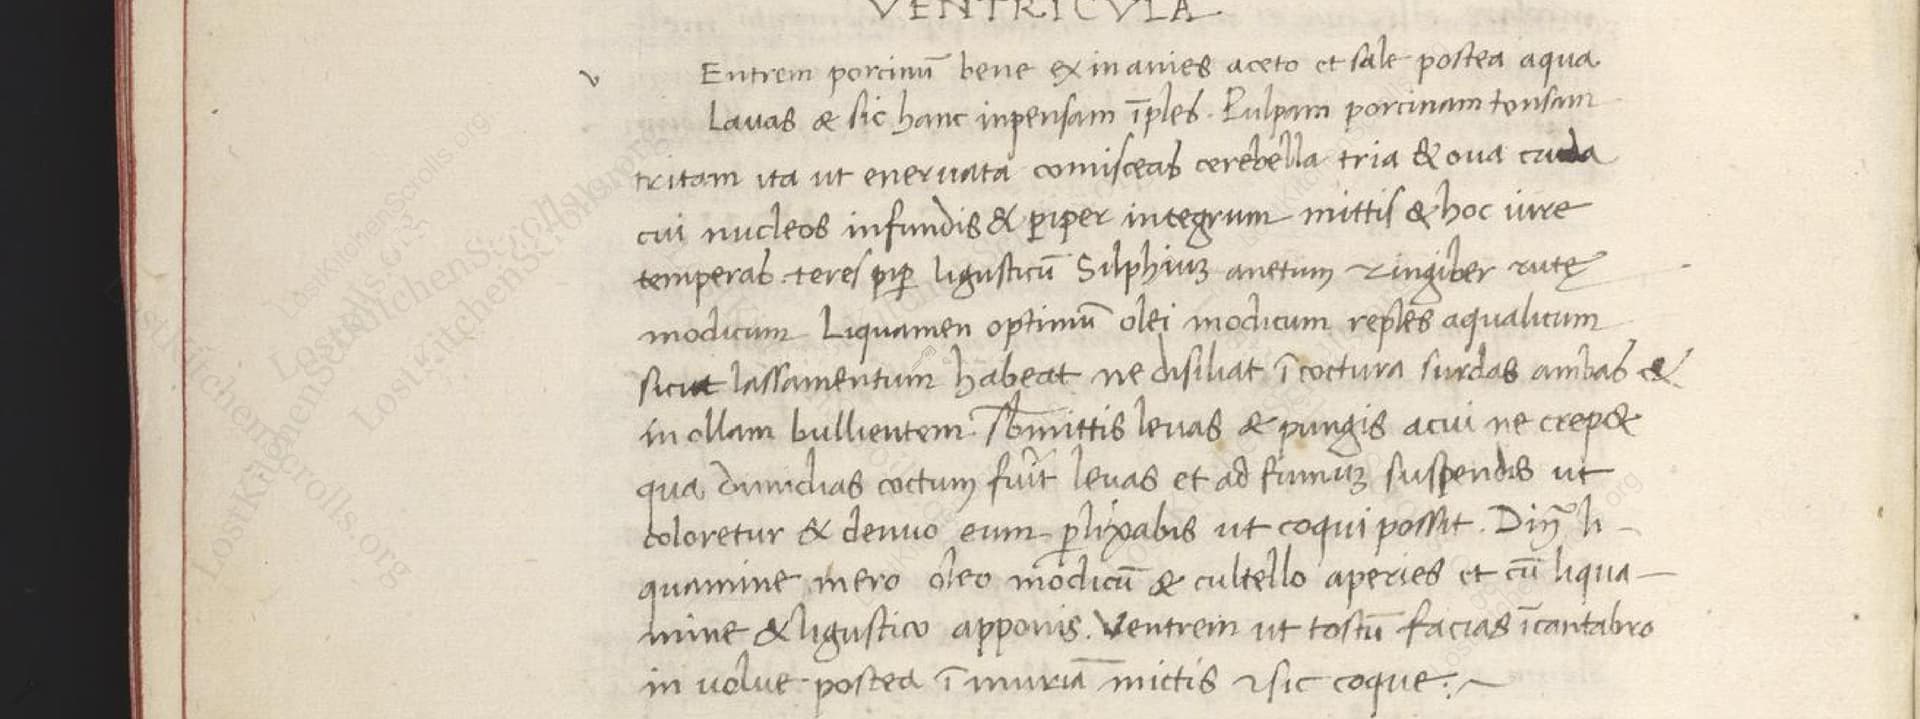 VENTRICVLA
v Entrem porcinū bene exinanies aceto et sale postea aqua
Lauas & sic hanc inpensam īples. Pulpam porcinam tonsam
tritam ita ut eneruata comisceas cerebella tria & oua cruda
cui nucleos infundis & piper integrum mittis & hoc iure
temperas. teres pip ligusticū Silphiuꝫ anetum zingiber rutę
modicum Liquamen optimū olei modicum reples aqualicum
sicut lassamentum habeat ne disiliat ī coctura surdas ambas &
in ollam bullientem. Sbmittis leuas & pungis acui ne crep&
qua dimidias coctum fuīt leuas et ad fumuꝫ suspendis ut
coloretur & denuo eum ꝑlixabis ut coqui possit. Diī li-
quamine mero oleo modicū & cultello aperies et cū liqua-
mine & ligustico apponis. Ventrem ut tostū facias īcantabro
in uolue postea ī muriā mittis & sic coque:~
LostKitchenScrolls.org